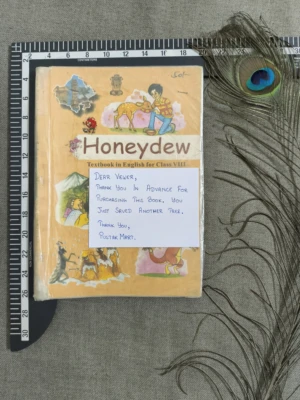 Honeydew
Textbook in English for Class VIII
DEAR VIEWER,
THANK YOU IN ADVANCE FOR
PURCHASING THIS BOOK. YOU
JUST SAVED ANOTHER TREE.
THANK YOU,
PUSTAK MART.